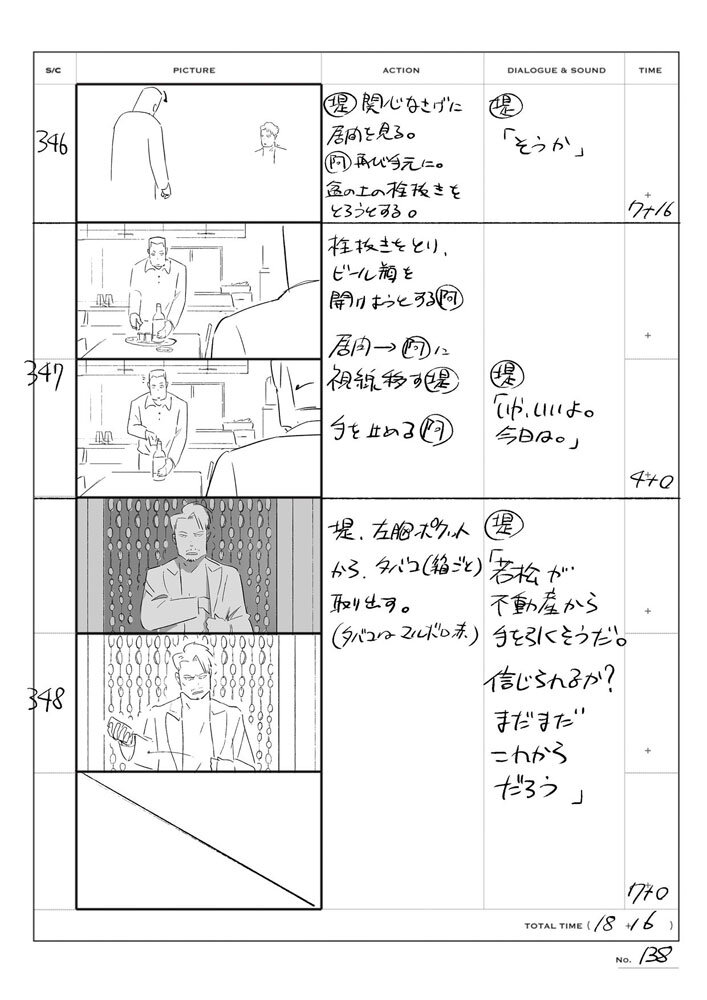 S/C
PICTURE
ACTION
DIALOGUE & SOUND
TIME
346
堤 関心なさげに
居間を見る。
阿 再び手元に。
盆の上の栓抜きを
とろうとする。
堤
「そうか」
7+16
347
栓抜きをとり、
ビール瓶を
開けようとする阿
居間→阿に
視線移す堤
手を止める阿
堤
「いや、いいよ。
今日は。」
4+0
348
堤、左胸ポケット
から、タバコ(箱ごと)
取り出す。
(タバコはマルボロ赤)
堤
「若松が
不動産から
手を引くそうだ。
信じられるか?
まだまだ
これから
だろう」
7+0
TOTAL TIME ( 18 +16 )
No. 138